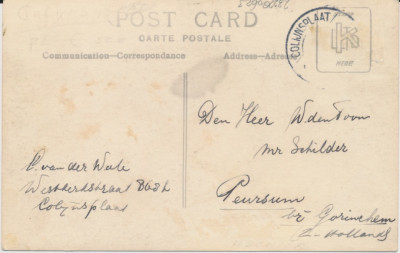 POST CARD
CARTE POSTALE
Communication-Correspondance
Address-Adres
COLIJNSPLAAT
Den Heer W den Toom
Mr Schilder
Peursum
bij Gorinchem
Z-Holland
van der Weele
Colijnsplaat